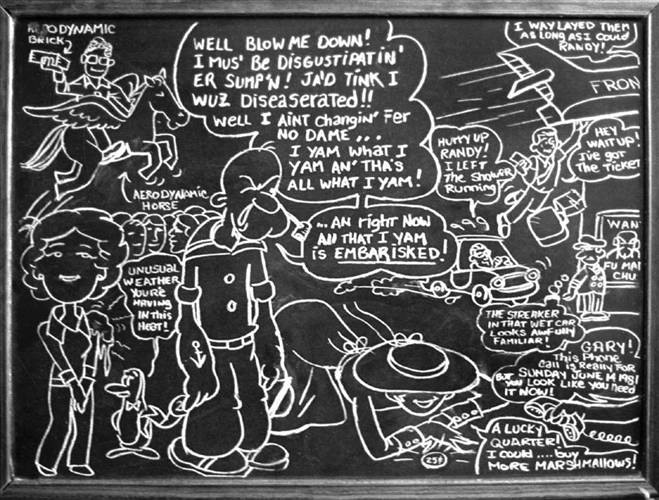 AERODYNAMIC
BRICK
WELL BLOW ME DOWN!
I MUS' BE DISGUSTIPATIN'
ER SUMP'N! JA'D TINK I
WUZ DISEASERATED!!
WELL I AINT CHANGIN' FER
NO DAME...
I YAM WHAT I
YAM AN' THA'S
ALL WHAT I YAM!
... AN RIGHT NOW
All THAT I YAM
is EMBARISKED!
AERODYNAMIC
HORSE
UNUSUAL
WEATHER
YOU'RE
HAVING
IN this
HEAT!
I WAYLAYED THEM
AS LONG AS I COULD
RANDY!
FRON
HURRY UP
RANDY!
I LEFT
The SHOWER
RUNNING
HEY
WAIT UP!
I've GOT
THE TICKET
WAN
FU MAN
CHU
THE STREAKER
IN THAT WET CAR
LOOKS AWFULLY
FAMILIAR!
GARY!
This Phone
Call is Really FOR
SUNDAY JUNE 14 1981
BUT YOU LOOK LIKE YOU NEED
IT NOW!
A LUCKY
QUARTER!
I COULD ....buy
MORE MARSHMALLOWS!
25¢